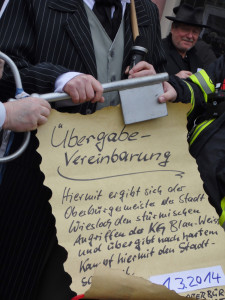 Übergabe-
Vereinbarung
Hiermit ergibt sich der
Oberbürgermeister der Stadt
Wiesloch den stürmischen
Angriffen der KG Blau-Weiß
und übergibt nach hartem
Kampf hiermit den Stadt-
1.3.2014